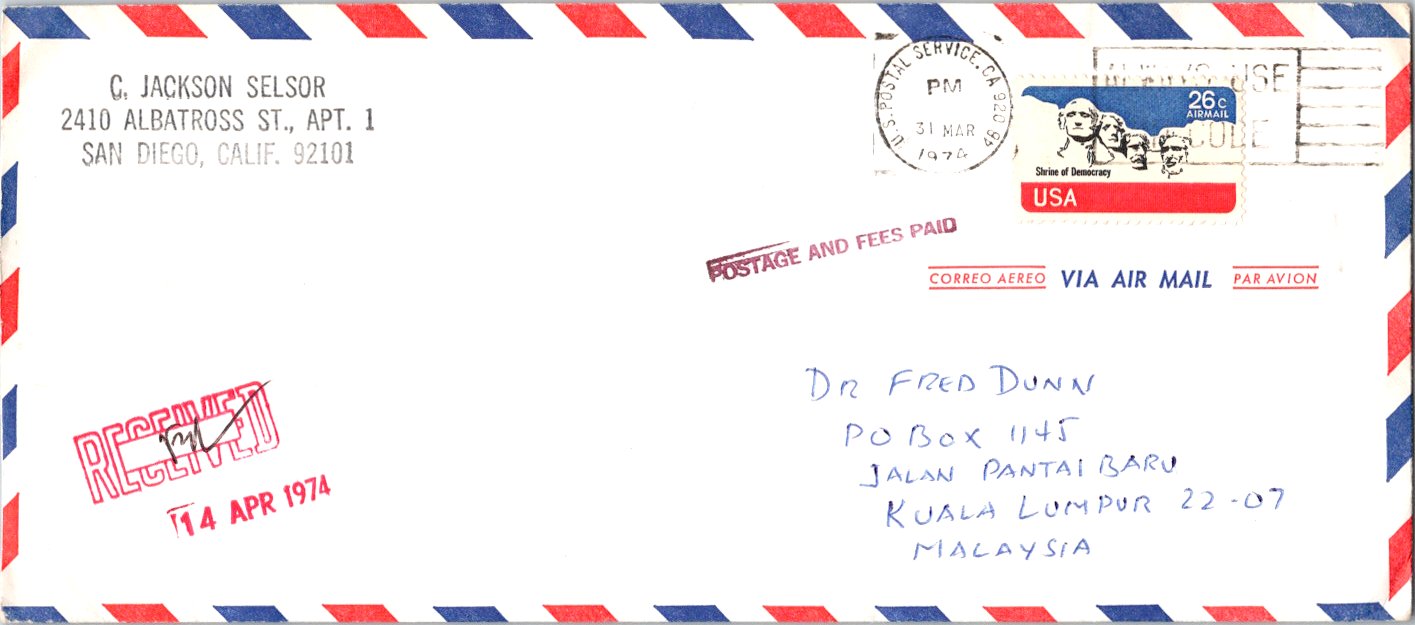 C. JACKSON SELSOR
2410 ALBATROSS ST., APT. 1
SAN DIEGO, CALIF. 92101
U.S. POSTAL SERVICE, CA 920
PM
31 MAR
1974
ALWAYS USE
CODE
26c
AIRMAIL
Shrine of Democracy
USA
POSTAGE AND FEES PAID
CORREO AEREO VIA AIR MAIL PAR AVION
DR FRED DUNN
PO BOX 1145
JALAN PANTAI BARU
KUALA LUMPUR 22-07
MALAYSIA
RECEIVED
14 APR 1974